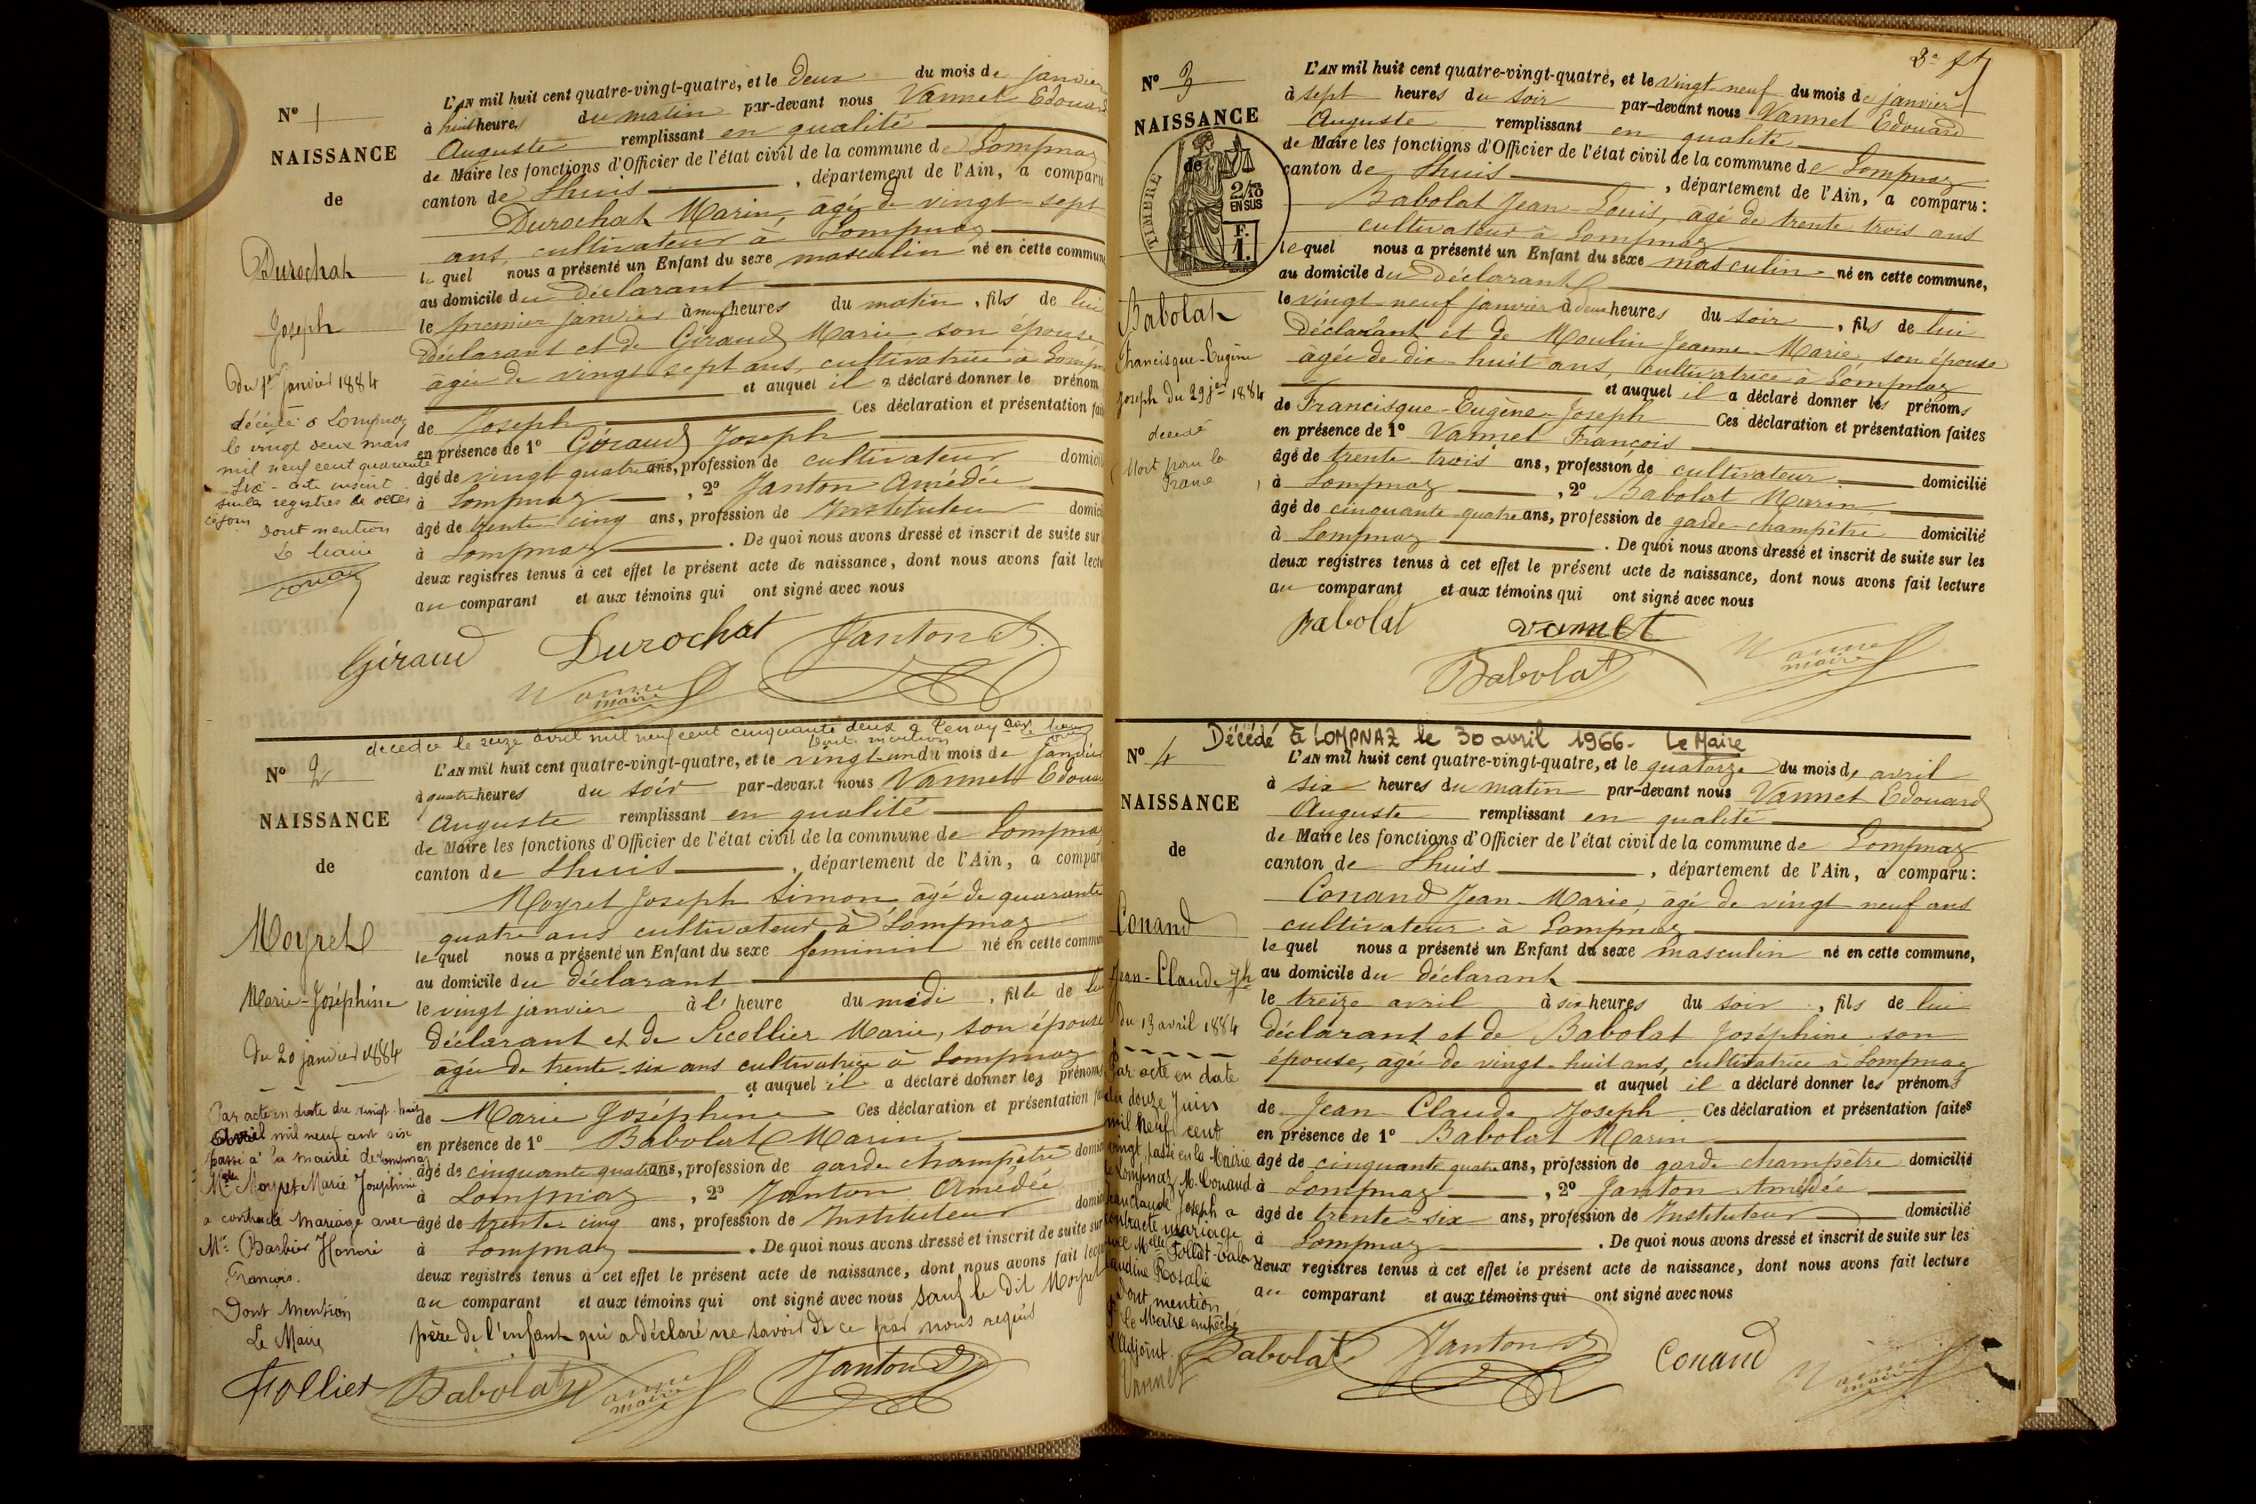 N° 1
NAISSANCE
de
Durochat
Joseph
du 1er janvier 1884
décédé à Lompnaz
le vingt deux mars
mil neuf cent quarante
six - acte inscrit
sur les registres de décès
ce jour
Dont mention
Le Maire
L'AN mil huit cent quatre-vingt-quatre, et le deux du mois de janvier
à huit heures du matin par-devant nous Vannet Edouard
Auguste remplissant en qualité
de Maire les fonctions d'Officier de l'état civil de la commune de Lompnaz
canton de Lhuis, département de l'Ain, a comparu
Durochat Marin, âgé de vingt-sept
ans, cultivateur à Lompnaz
lequel nous a présenté un Enfant du sexe masculin né en cette commune
au domicile du Déclarant
le premier janvier à neuf heures du matin, fils de lui
Déclarant et de Giraud Marie son épouse,
âgée de vingt-sept ans, cultivatrice à Lompn
et auquel il a déclaré donner le prénom
de Joseph Ces déclaration et présentation fait
en présence de 1° Giraud Joseph
âgé de vingt quatre ans, profession de cultivateur domicil
à Lompnaz, 2° Janton Amédée
âgé de trente cinq ans, profession de Instituteur domici
à Lompnaz. De quoi nous avons dressé et inscrit de suite sur
deux registres tenus à cet effet le présent acte de naissance, dont nous avons fait lectu
au comparant et aux témoins qui ont signé avec nous
Giraud Durochat Janton A.
Vannet
maire
décédée le seize avril mil neuf cent cinquante deux à Tenay
Dont mention
N° 2
NAISSANCE
de
Moyret
Marie-Joséphine
du 20 janvier 1884
Par acte en date du vingt-huit
avril mil neuf cent six
passé à la mairie de Lompnaz
Mlle Moyret Marie Joséphine
a contracté mariage avec
Mr Barbier Honoré
François.
Dont Mention
Le Maire
Follier
L'AN mil huit cent quatre-vingt-quatre, et le vingt-un du mois de janvier
à quatre heures du soir par-devant nous Vannet Edoua
Auguste remplissant en qualité
de Maire les fonctions d'Officier de l'état civil de la commune de Lompnaz
canton de Lhuis, département de l'Ain, a compar
Moyret Joseph Simon âgé de quarante
quatre ans cultivateur à Lompnaz
lequel nous a présenté un Enfant du sexe feminin né en cette commun
au domicile du déclarant
le vingt janvier à l' heure du midi, fille de lui
déclarant et de Sicollier Marie, son épouse
âgée de trente-six ans cultivatrice à Lompnaz
et auquel il a déclaré donner les prénoms
de Marie Joséphine Ces déclaration et présentation fai
en présence de 1° Babolat Marin
âgé de cinquante quatre ans, profession de garde champêtre domici
à Lompnaz, 2° Janton Amédée
âgé de trente cinq ans, profession de Instituteur domici
à Lompnaz. De quoi nous avons dressé et inscrit de suite sur
deux registres tenus à cet effet le présent acte de naissance, dont nous avons fait lectu
au comparant et aux témoins qui ont signé avec nous sauf le dit Moyret
père de l'enfant qui a déclaré ne savoir de ce par nous requis
Babolat Vannet Janton A
maire
3e ft
N° 3
NAISSANCE
de
TIMBRE
2/10
EN SUS
F.
1.
Babolat
Francisque-Eugène
Joseph du 29 jer 1884
décédé
(Mort pour la
France)
L'AN mil huit cent quatre-vingt-quatre, et le vingt neuf du mois de janvier
à sept heures du soir par-devant nous Vannet Edouard
Auguste remplissant en qualité
de Maire les fonctions d'Officier de l'état civil de la commune de Lompnaz
canton de Lhuis, département de l'Ain, a comparu:
Babolat Jean-Louis, âgé de trente trois ans
cultivateur à Lompnaz
lequel nous a présenté un Enfant du sexe masculin né en cette commune,
au domicile du Déclarant
le vingt-neuf janvier à deux heures du soir, fils de lui
Déclarant et de Moulin Jeanne-Marie, son épouse
âgée de dix-huit ans, cultivatrice à Lompnaz
et auquel il a déclaré donner les prénoms
de Francisque-Eugène-Joseph Ces déclaration et présentation faites
en présence de 1° Vannet François
âgé de trente trois ans, profession de cultivateur domicilié
à Lompnaz, 2° Babolat Marin
âgé de cinquante-quatre ans, profession de garde-champêtre domicilié
à Lompnaz. De quoi nous avons dressé et inscrit de suite sur les
deux registres tenus à cet effet le présent acte de naissance, dont nous avons fait lecture
au comparant et aux témoins qui ont signé avec nous
Babolat vannet
Babolat Vannet
maire
Décédé à LOMPNAZ le 30 avril 1966- Le Maire
N° 4
NAISSANCE
de
Conand
Jean-Claude Jh
du 13 avril 1884
Par acte en date
du douze Juin
mil neuf cent
vingt, passé en la Mairie
de Lompnaz, M. Conand
Jean Claude Joseph a
contracté mariage
avec Melle Follat-
Claudine Rosalie
Dont mention
Pr le Maire empêché
l'Adjoint.
Vannet
L'AN mil huit cent quatre-vingt-quatre, et le quatorze du mois de avril
à six heures du matin par-devant nous Vannet Edouard
Auguste remplissant en qualité
de Maire les fonctions d'Officier de l'état civil de la commune de Lompnaz
canton de Lhuis, département de l'Ain, a comparu:
Conand Jean-Marie, âgé de vingt neuf ans
cultivateur à Lompnaz
lequel nous a présenté un Enfant du sexe masculin né en cette commune,
au domicile du déclarant
le treize avril à six heures du soir, fils de lui
déclarant et de Babolat Joséphine son
épouse, âgée de vingt-huit ans, cultivatrice à Lompnaz
et auquel il a déclaré donner les prénoms
de Jean Claude Joseph Ces déclaration et présentation faites
en présence de 1° Babolat Marin
âgé de cinquante quatre ans, profession de garde champêtre domicilié
à Lompnaz, 2° Janton Amédée
âgé de trente-six ans, profession de Instituteur domicilié
à Lompnaz. De quoi nous avons dressé et inscrit de suite sur les
deux registres tenus à cet effet le présent acte de naissance, dont nous avons fait lecture
au comparant et aux témoins qui ont signé avec nous
Babolat Janton A Conand Vannet
maire